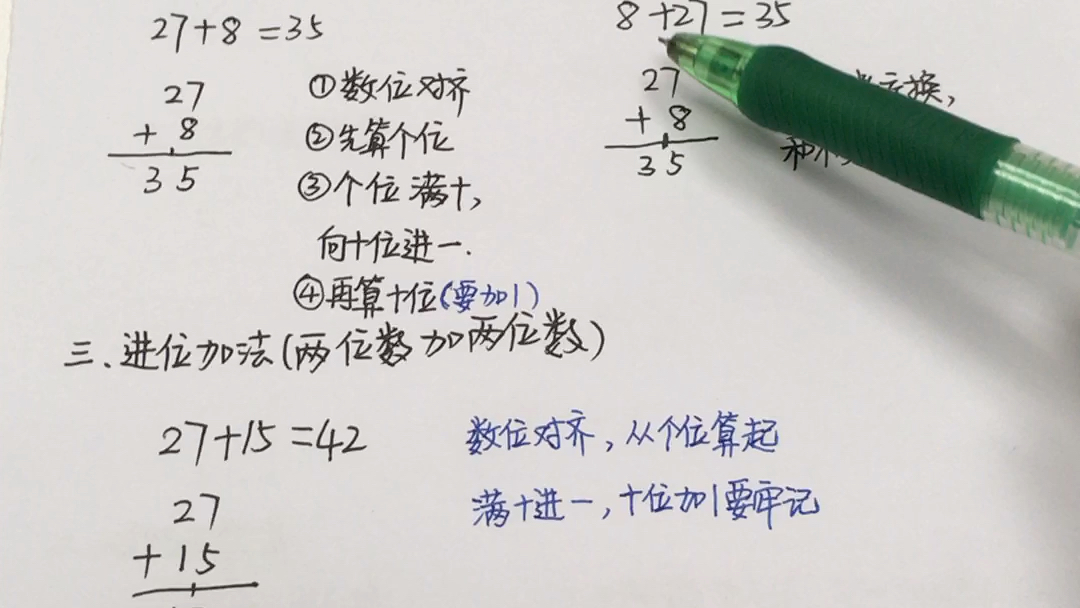 27+8=35
27
+ 8
35
①数位对齐
②先算个位
③个位满十,
向十位进一.
④再算十位(要加1)
8+27=35
27
+ 8
35
换,
和
三、进位加法(两位数加两位数)
27+15=42
27
+15
数位对齐,从个位算起
满十进一,十位加1要牢记